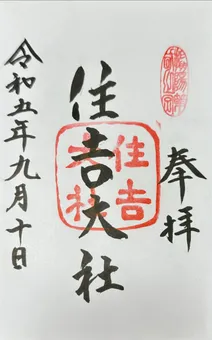 奉拝
住吉大社
住吉大社
令和五年九月十日